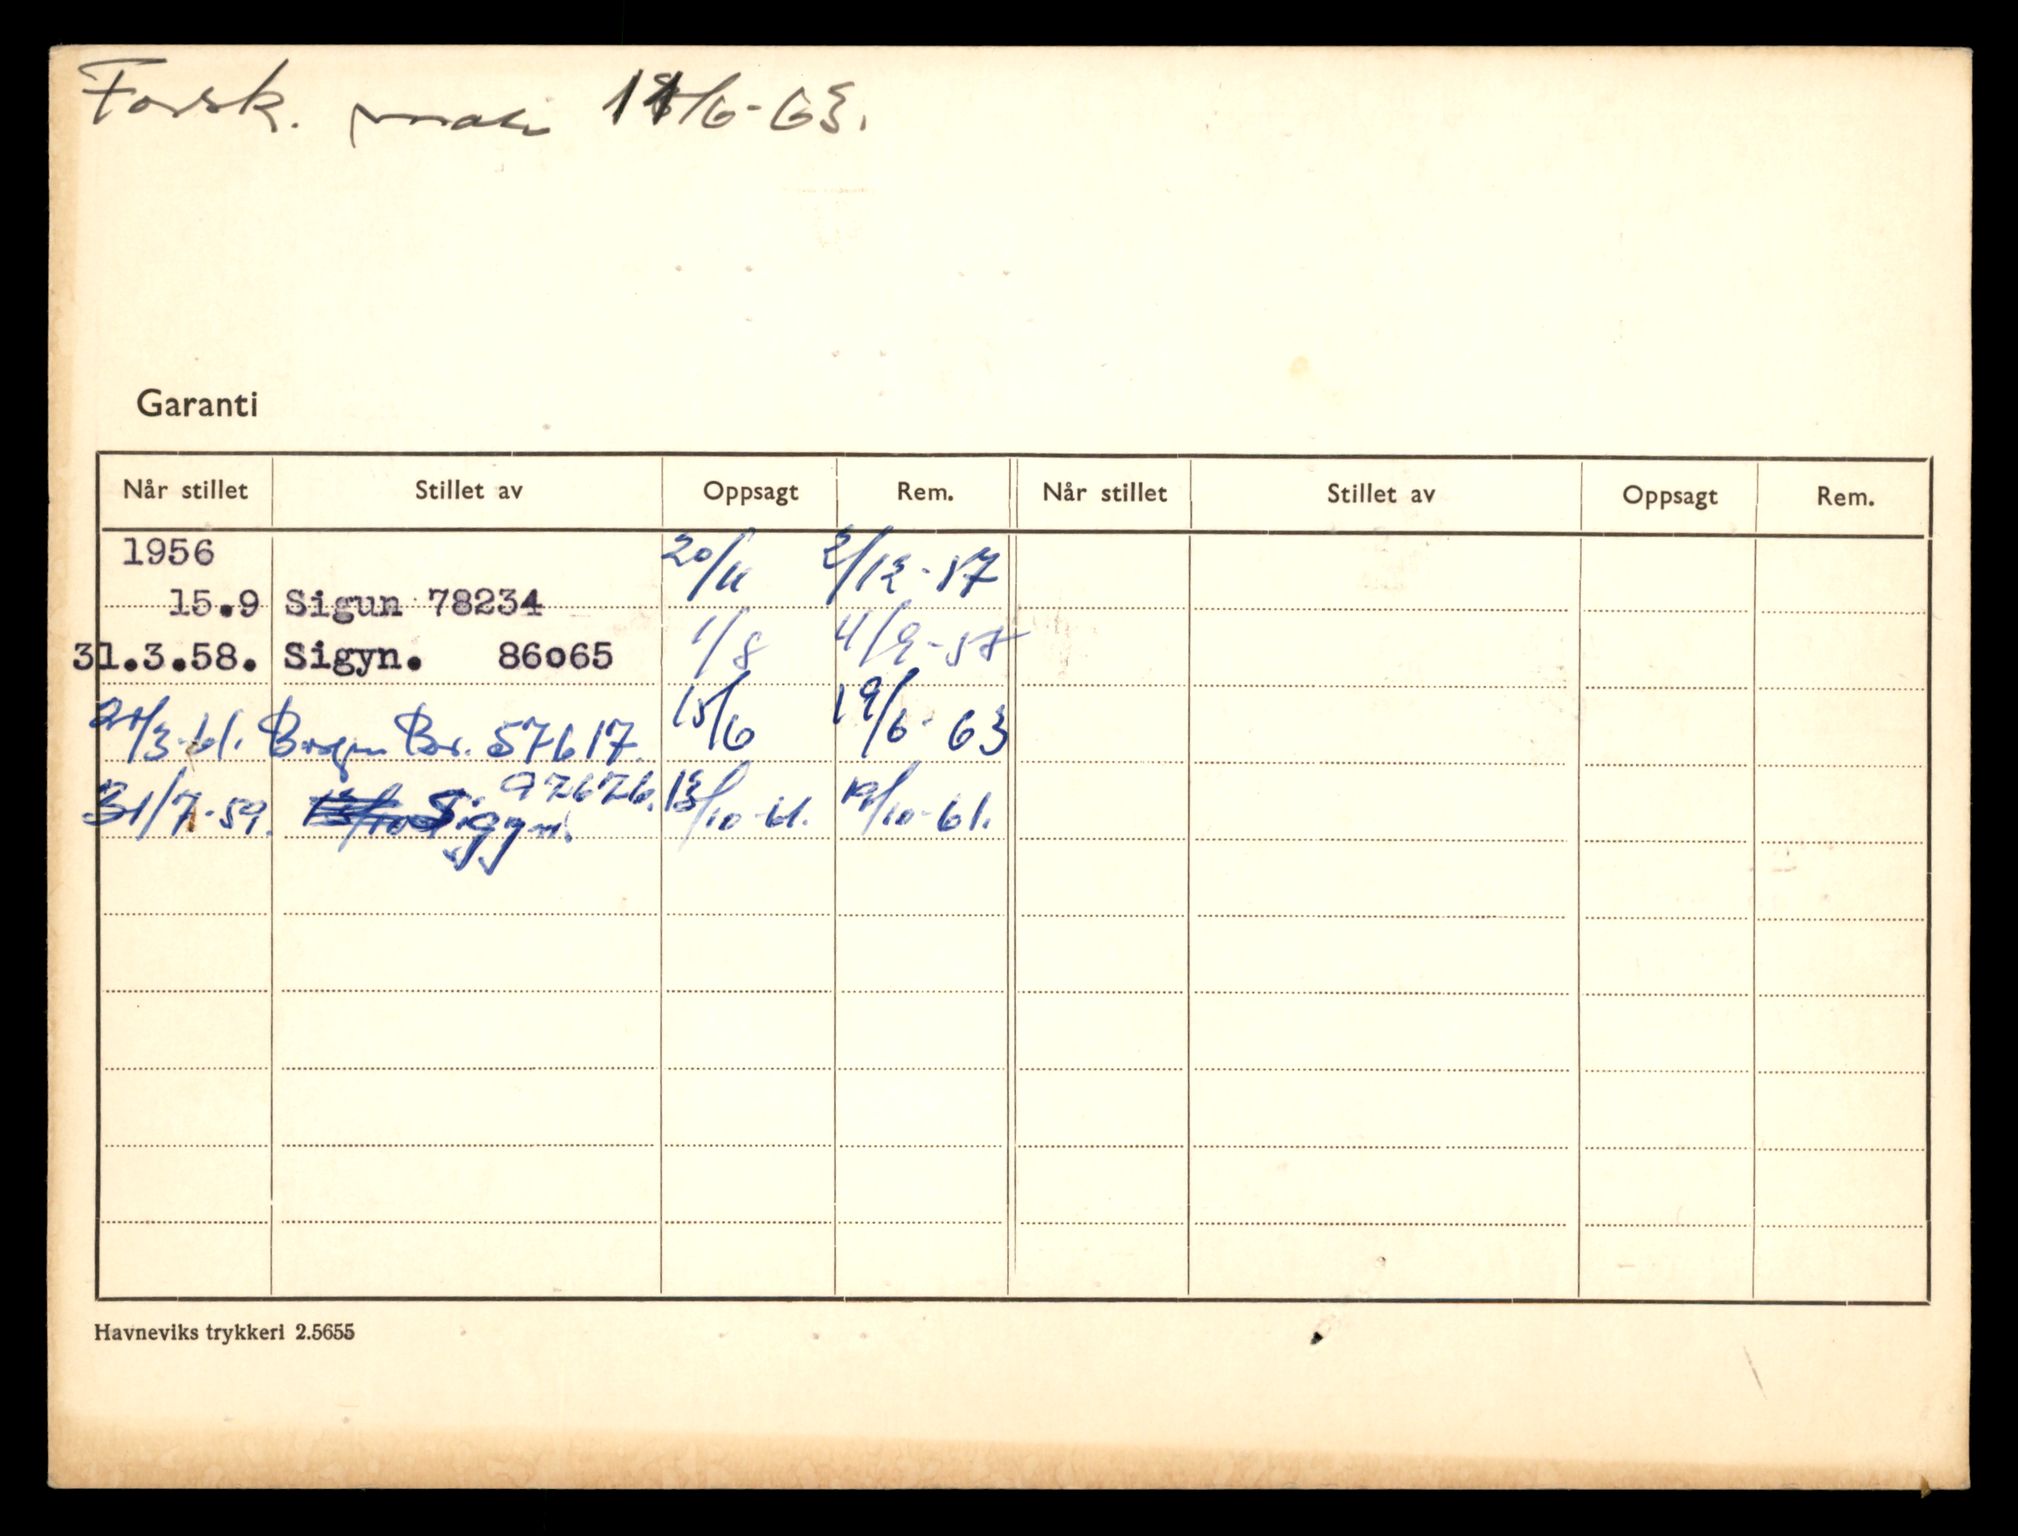 Forsk. 11/6-63.
Garanti
Når stillet Stillet av Oppsagt Rem. Når stillet Stillet av Oppsagt Rem.
1956 20/11 2/12-57
15.9 Sigun 78234
31.3.58. Sigyn. 86o65 1/8 4/9-57
/3-61. Br. 57617. 15/6 19/6-63
31/7-59. Sigyn. 97676. 13/10-61. 19/10-61.
Havneviks trykkeri 2.5655